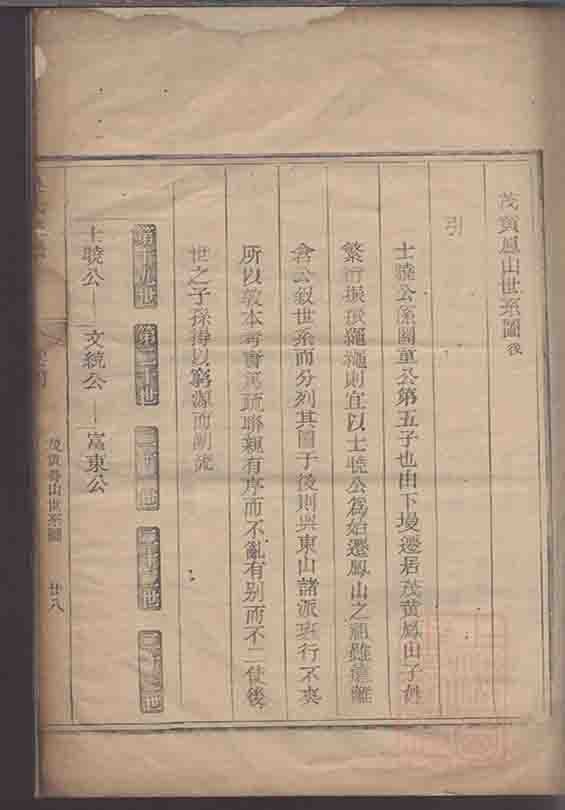 茂黄鳳山世系圖後
引
士曉公係園童公第五子也由下墁遷居茂黄鳳山子姓
繁衍振振繩繩則宜以士曉公為始遷鳳山之祖雖遠離
含公叙世系而分列其圖于後則與東山諸派班行不紊
所以敦本也聯親有序而不亂有别而不二使後
世之子孫得以窮源而溯流
第十九世 第二十世 世 世 世
士曉公 文統公 富東公
茂黄鳳山世系圖 廿八